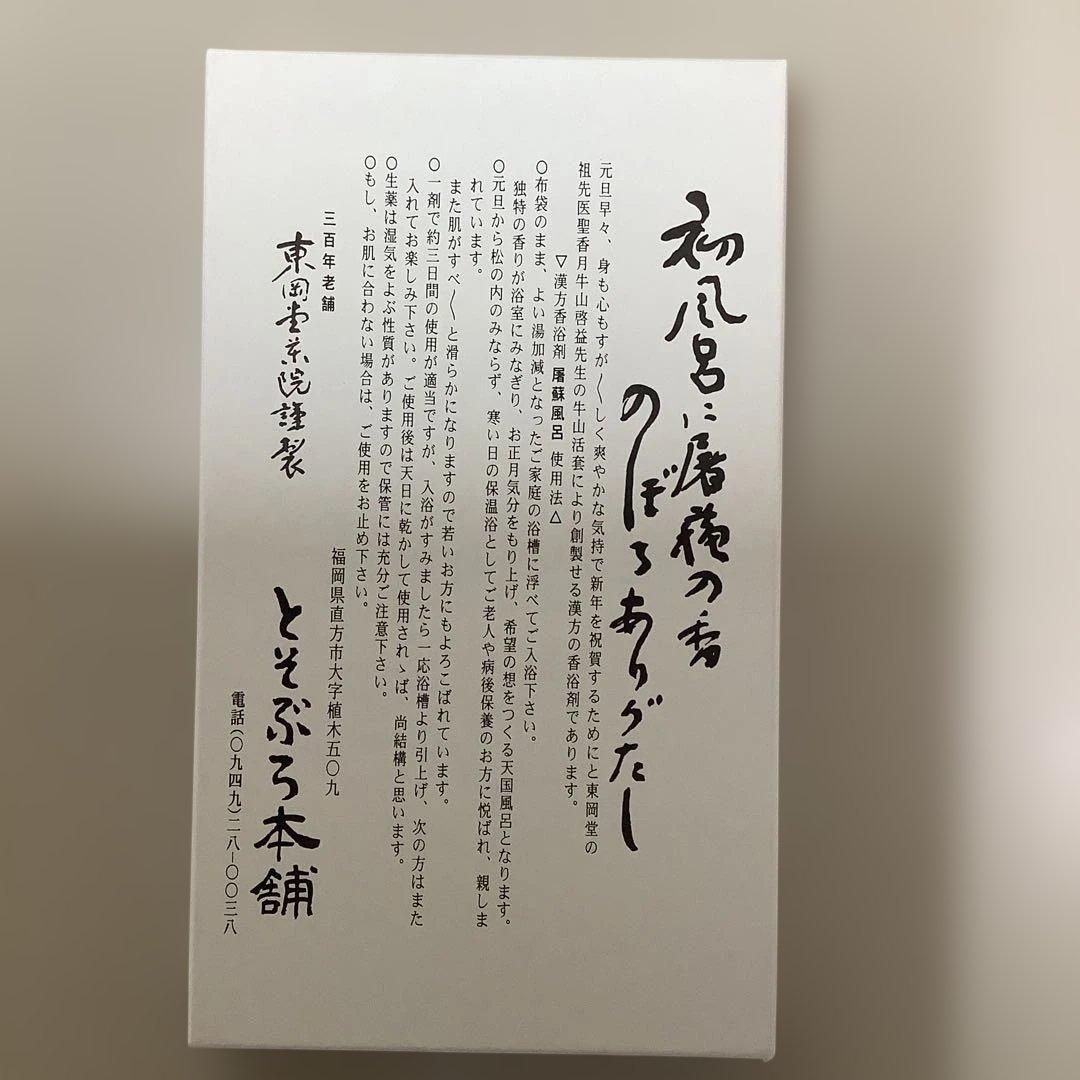 初風呂に屠蘇の香
のぼるありがたし
元旦早々、身も心もすが〱しく爽やかな気持で新年を祝賀するためにと東岡堂の
祖先医聖香月牛山啓益先生の牛山活套により創製せる漢方の香浴剤であります。
▽漢方香浴剤 屠蘇風呂 使用法△
〇布袋のまま、よい湯加減となったご家庭の浴槽に浮べてご入浴下さい。
独特の香りが浴室にみなぎり、お正月気分をもり上げ、希望の想をつくる天国風呂となります。
〇元旦から松の内のみならず、寒い日の保温浴としてご老人や病後保養のお方に悦ばれ、親しま
れています。
また肌がすべ〱と滑らかになりますので若いお方にもよろこばれています。
〇一剤で約三日間の使用が適当ですが、入浴がすみましたら一応浴槽より引上げ、次の方はまた
入れてお楽しみ下さい。ご使用後は天日に乾かして使用されゝば、尚結構と思います。
〇生薬は湿気をよぶ性質がありますので保管には充分ご注意下さい。
〇もし、お肌に合わない場合は、ご使用をお止め下さい。
三百年老舗
東岡堂薬院謹製
福岡県直方市大字植木五〇九
とそぶろ本舗
電話(〇九四九)二八-〇〇三八